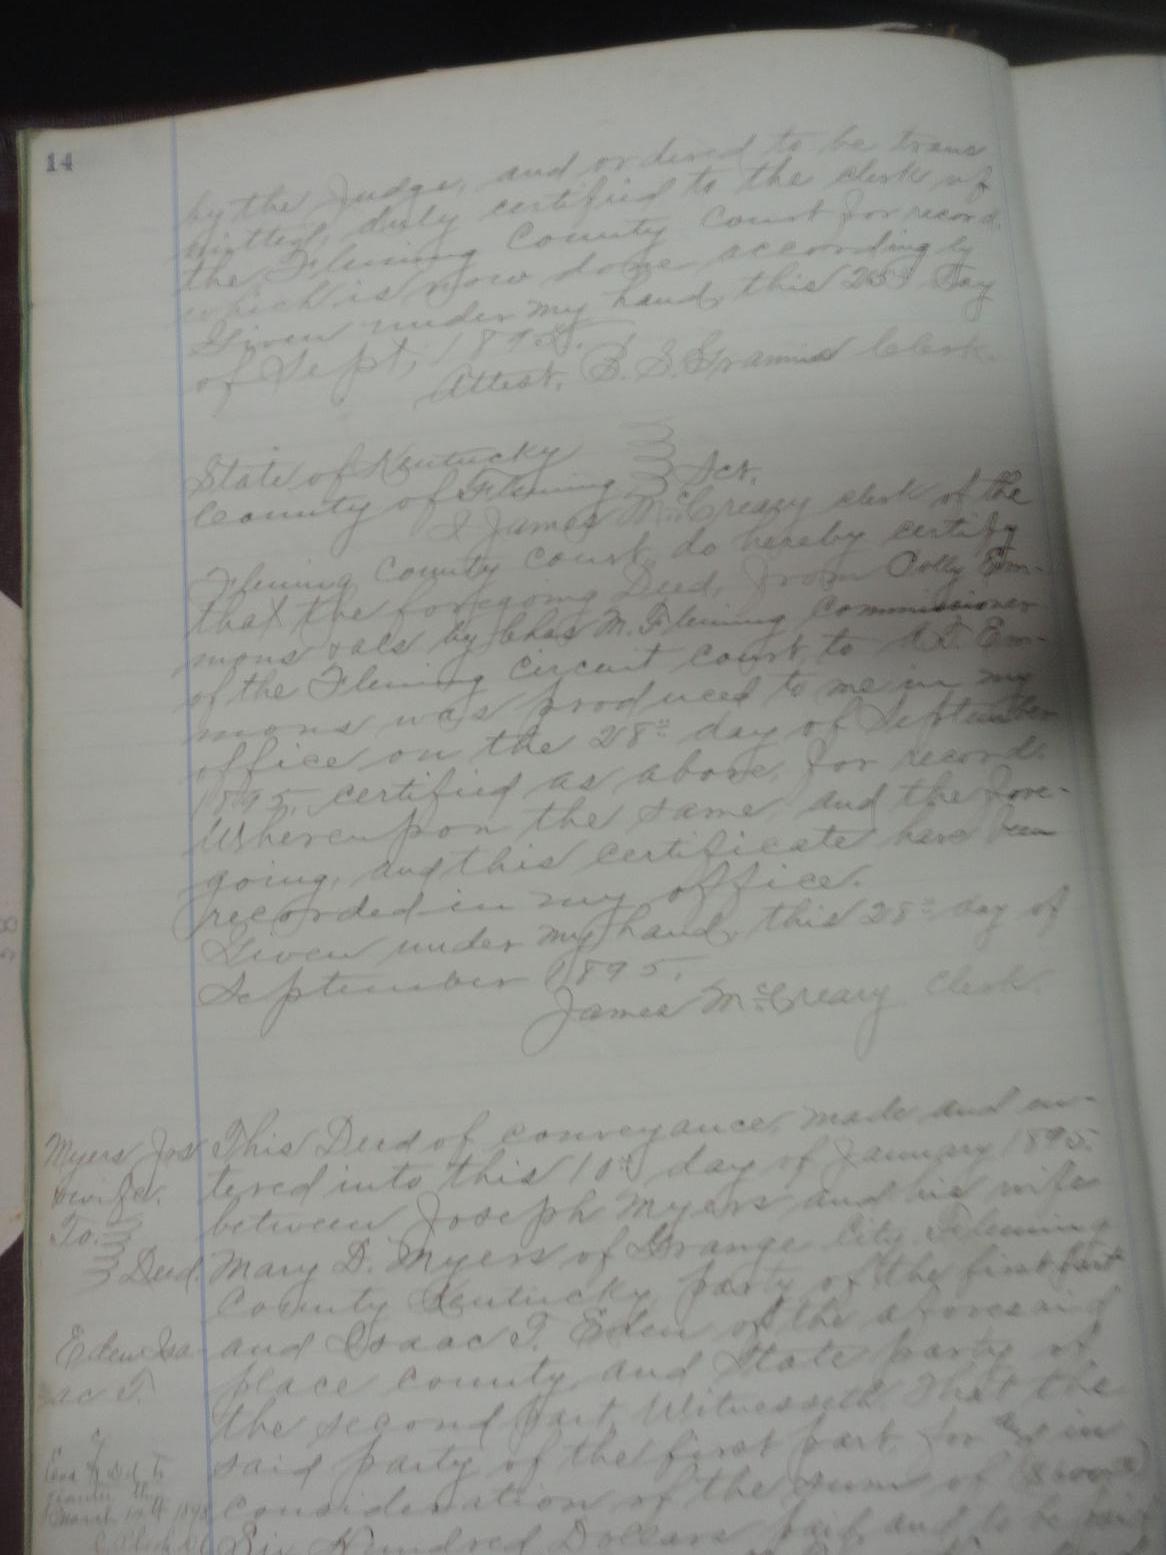 14
by the Judge, and ordered to be trans
mitted, duly certified to the clerk of
the Fleming County Court for record,
which is now done accordingly
Given under my hand, this 25th Day
of Sept, 1895.
Attest, B. S. Grannis Clerk.
State of Kentucky
County of Fleming Sct.
I James McCreary clerk of the
Fleming County Court, do hereby certify
that the foregoing Deed, from Polly Em-
mons &als by Chas M. Fleming Commissioner
of the Fleming Circuit Court, to Em-
mons was produced to me in my
office on the 28th day of September
1895, certified as above, for record.
Whereupon the same, and the fore-
going, and this certificate have been
recorded in my office.
Given under my hand, this 28th day of
September 1895.
James McCreary Clerk.
Myers Jos
&wife.
To.
Deed
Eden Isa
ac T.
March 1898
This Deed of conveyance, made and en-
tered into this 10th day of January 1895.
between Joseph Myers and his wife
Mary D. Myers of Grange City, Fleming
County Kentucky, party of the first part
and Isaac T. Eden of the aforesaid
place county, and State party of
the second part, Witnesseth: That the
said party of the first part, for & in
consideration of the sum of
Six Hundred Dollars paid, and to be paid